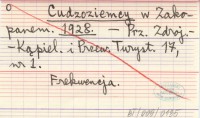 Cudzoziemcy w Zako-
panem. 1928. — Prz. Zdroj.-
-Kąpiel. i Przew. Turyst. 17,
nr 1.
Frekwencja.